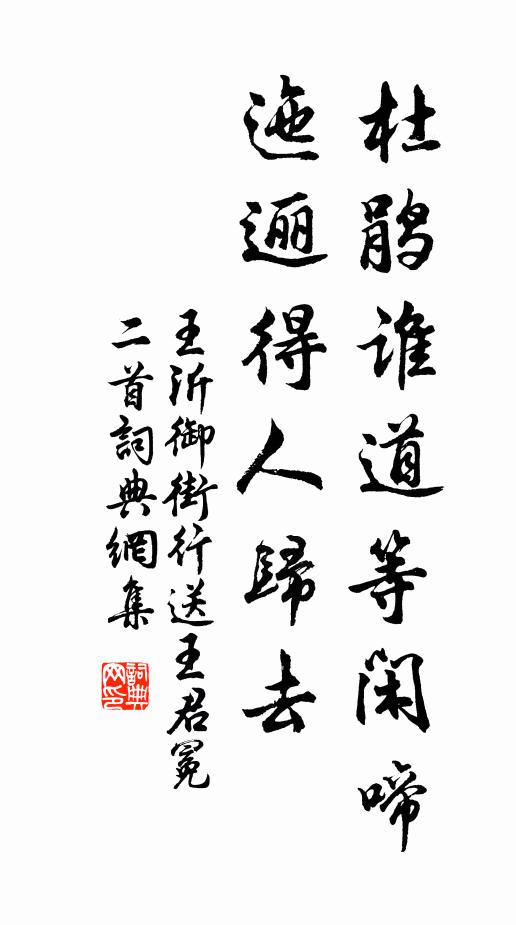 杜鹃谁道等闲啼
迤逦得人歸去
王沂御街行送王君冕
二首詞典網集
詞典网印